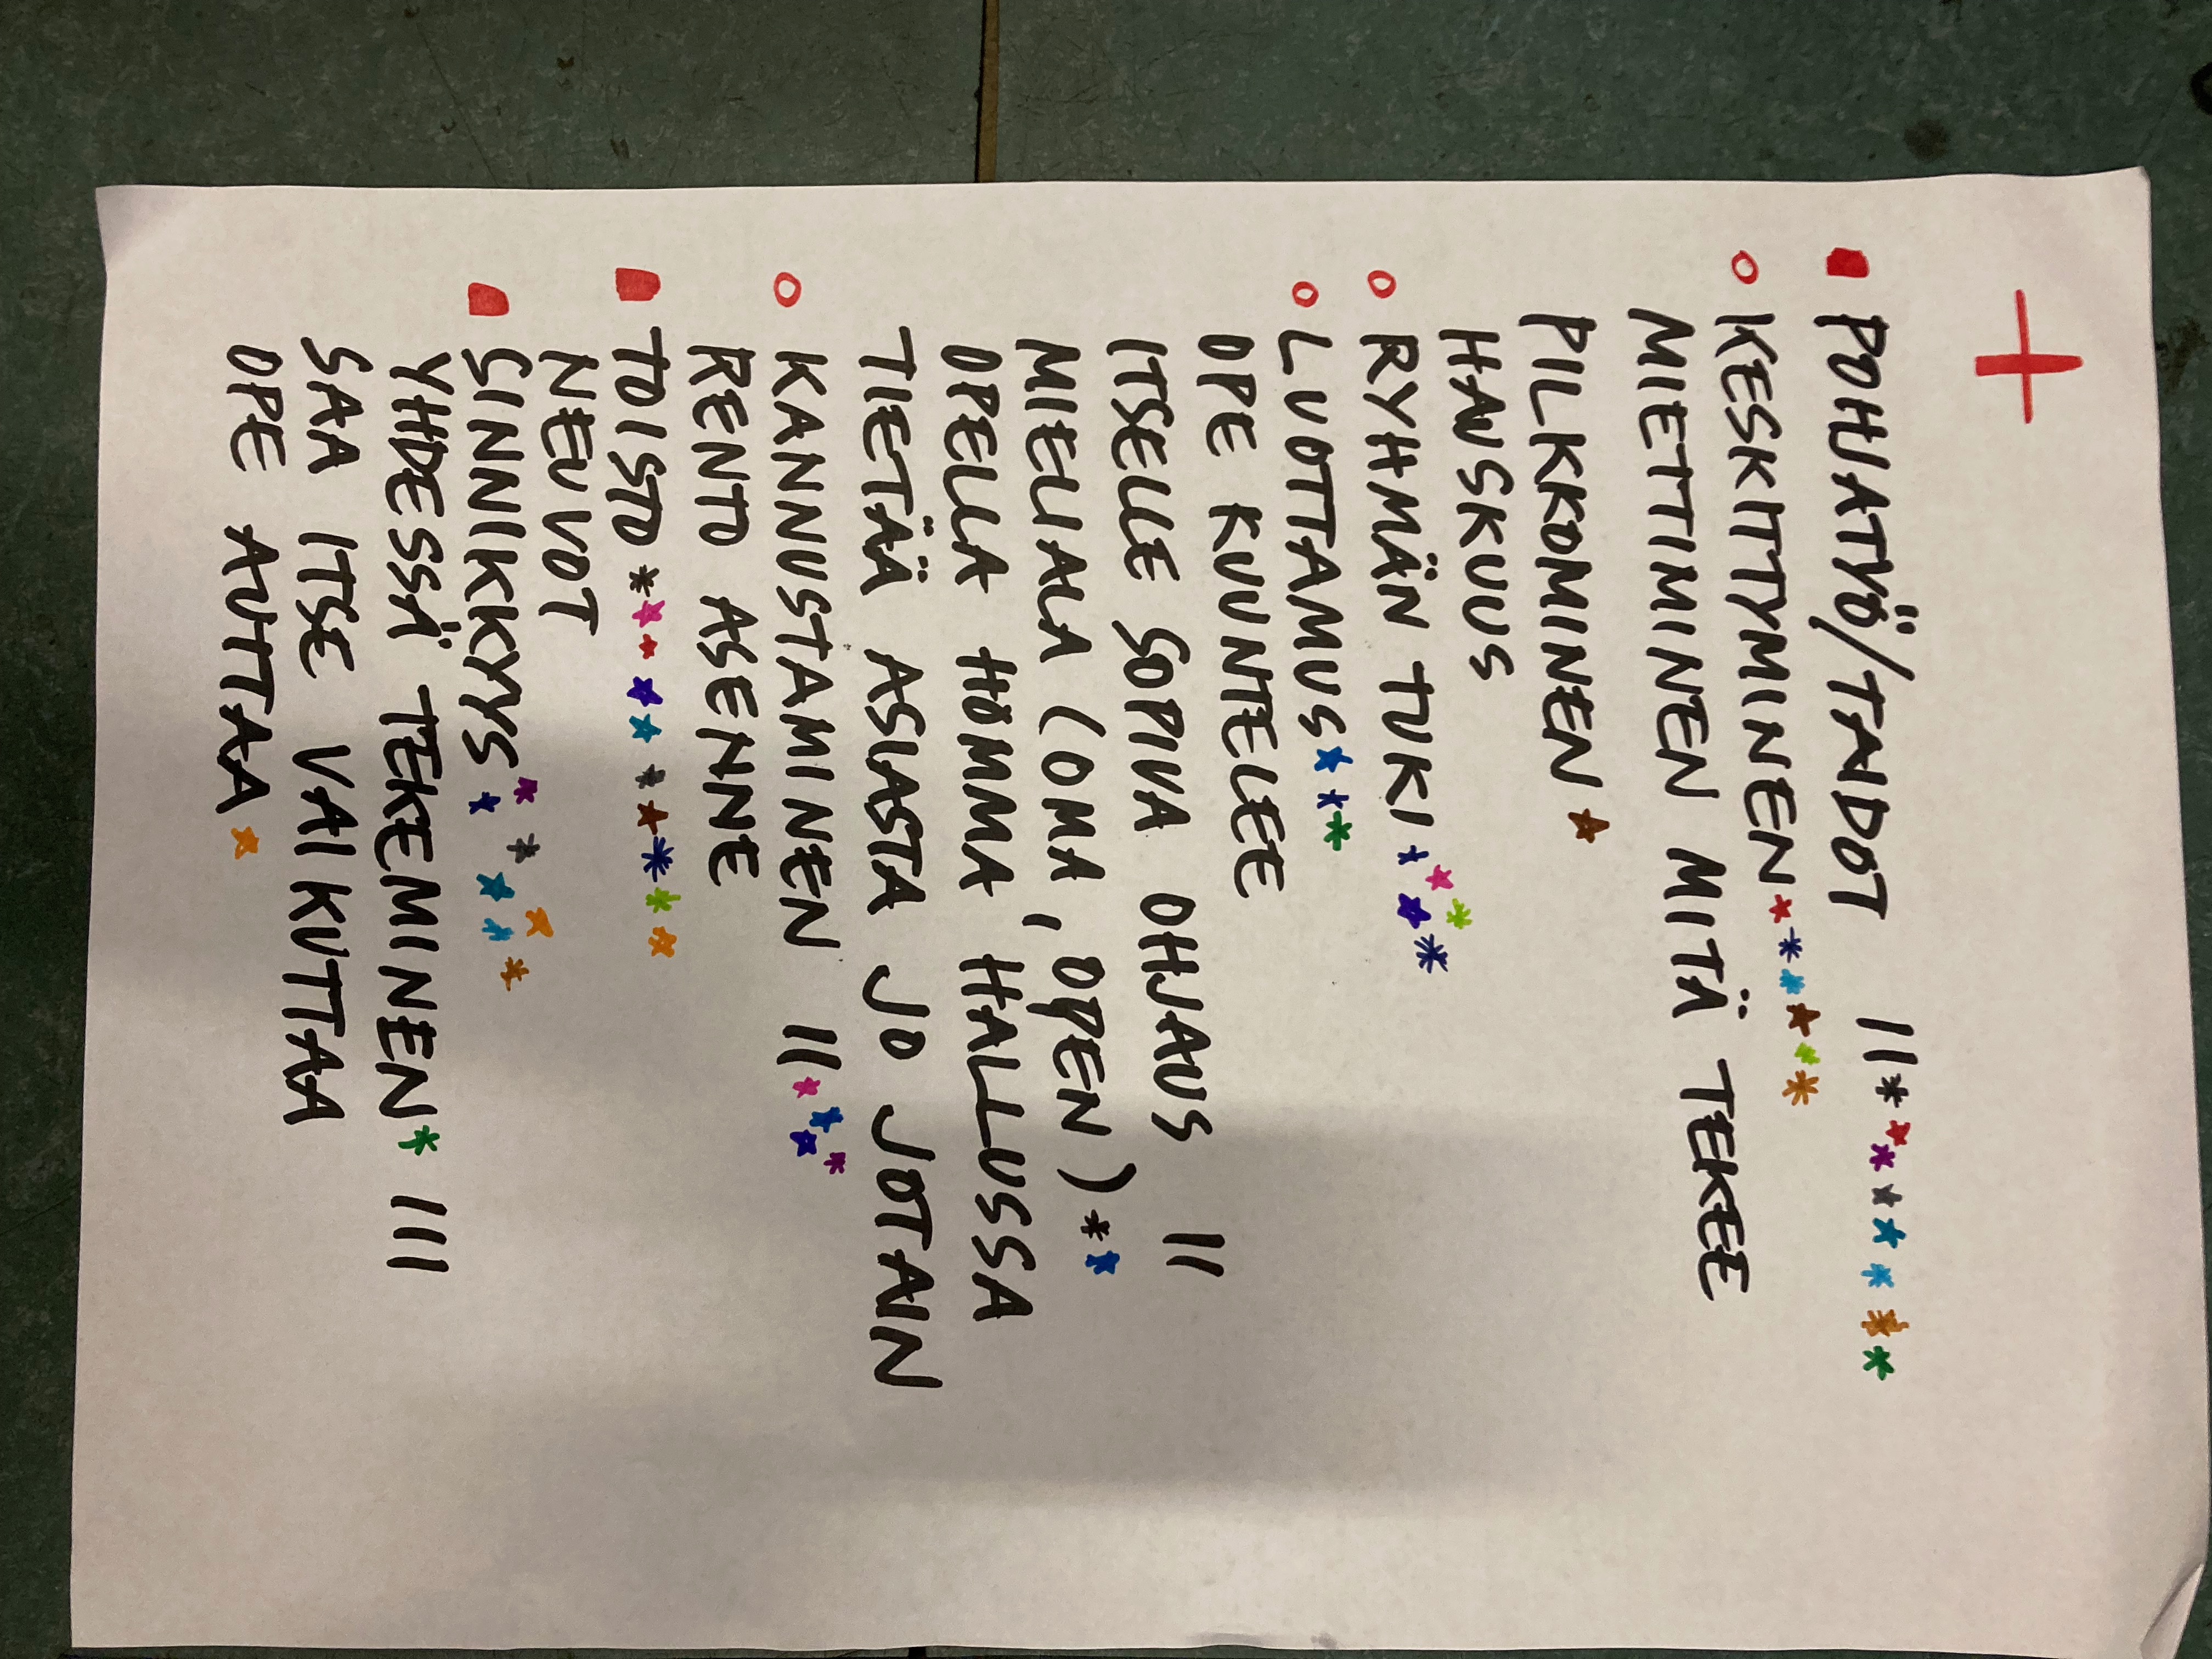 +
POHJATYÖ/TAIDOT ||
KESKITTYMINEN
MIETTIMINEN MITÄ TEKEE
PILKKOMINEN
HANSKUUS
RYHMÄN TUKI
LUOTTAMUS
OPE KUUNTELEE
ITSELLE SOPIVA OHJAUS ||
MIELIALA (OMA, OPEN)
OPELLA HOMMA HALLUSSA
TIETÄÄ ASIASTA JO JOTAIN
KANNUSTAMINEN ||
RENTO ASENNE
TOISTO
NEUVOT
SINNIKKYYS
YHDESSÄ TEKEMINEN |||
SAA ITSE VAIKUTTAA
OPE AUTTAA